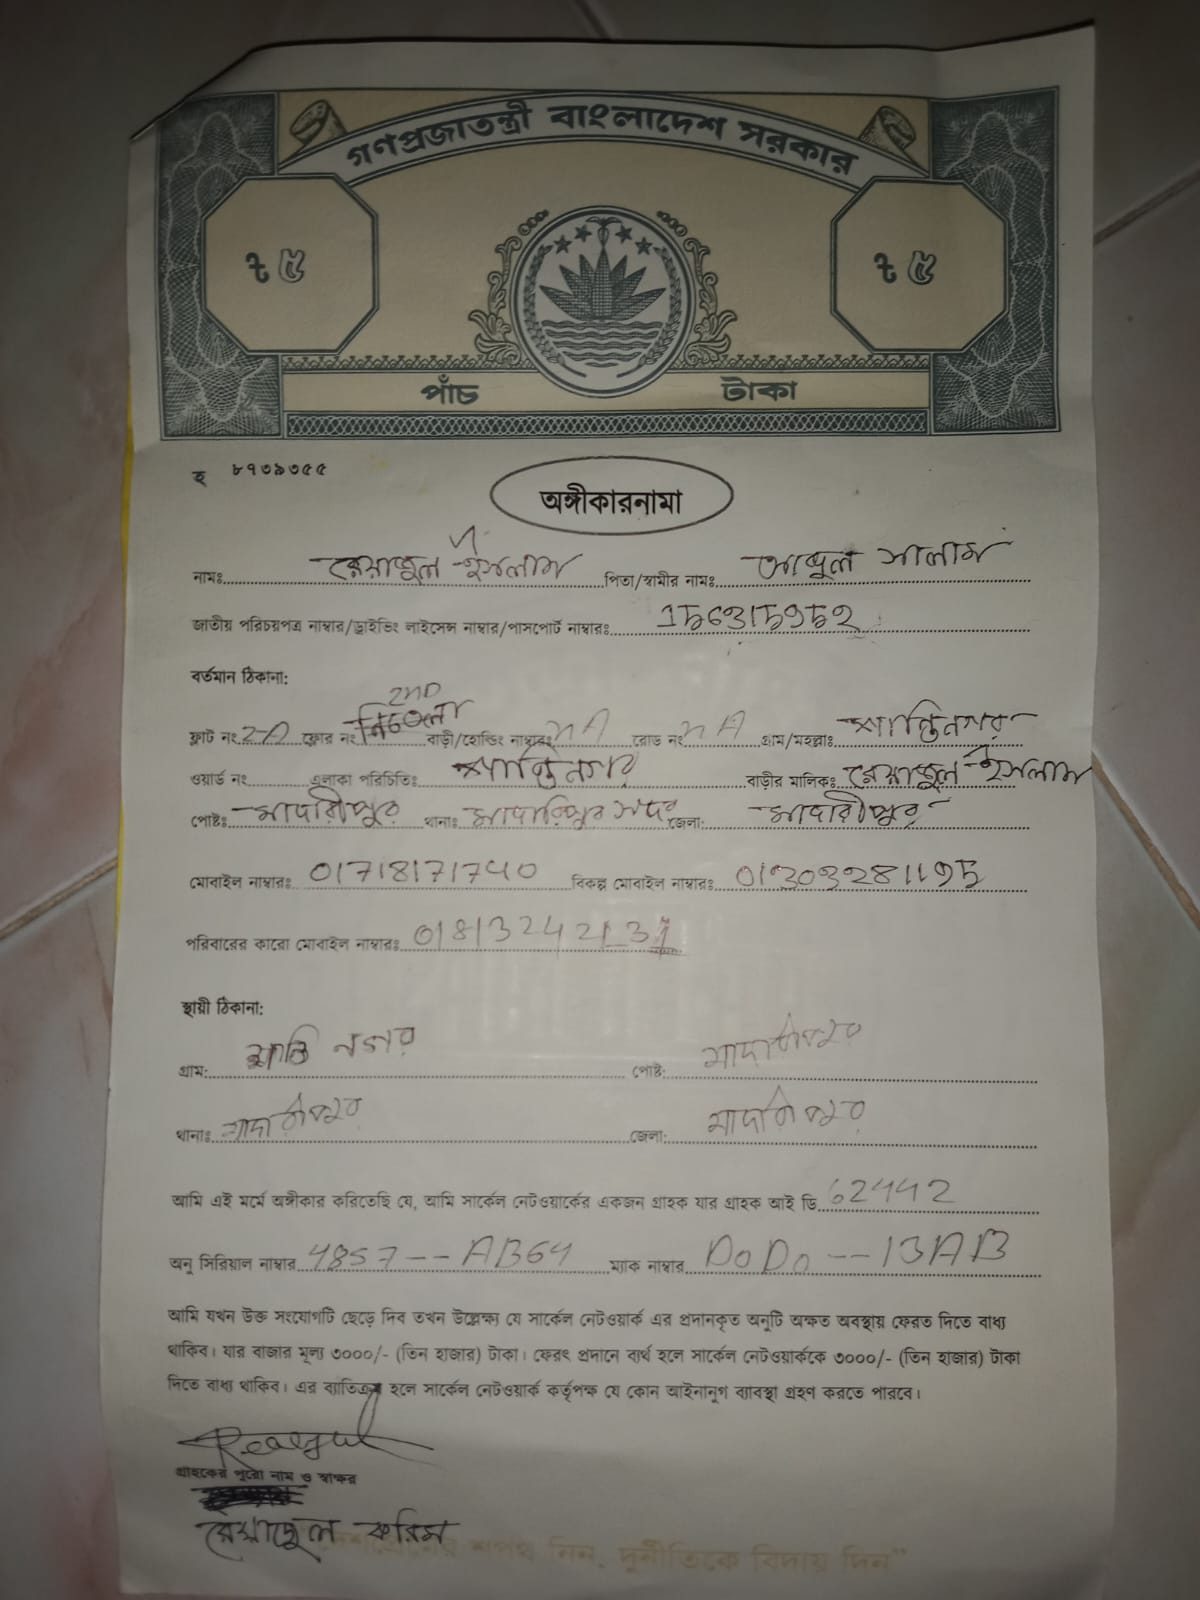 গণপ্রজাতন্ত্রী বাংলাদেশ সরকার
৳ ৫ ৳ ৫
পাঁচ টাকা
হ ৮৭৩৯৩৫৫
অঙ্গীকারনামা
নামঃ রেয়াজুল ইসলাম পিতা/স্বামীর নামঃ আব্দুল সালাম
জাতীয় পরিচয়পত্র নাম্বার/ড্রাইভিং লাইসেন্স নাম্বার/পাসপোর্ট নাম্বারঃ
বর্তমান ঠিকানা:
2ND
ফ্লাট নং 2-A ফ্লোর নং বাড়ী/হোল্ডিং নাম্বারঃ NA রোড নং NA গ্রাম/মহল্লাঃ শান্তিনগর
ওয়ার্ড নং এলাকা পরিচিতিঃ শান্তিনগর বাড়ীর মালিকঃ রেয়াজুল ইসলাম
পোষ্টঃ মাদারীপুর থানাঃ মাদারিপুর সদর জেলা: মাদারীপুর
মোবাইল নাম্বারঃ 01718171740 বিকল্প মোবাইল নাম্বারঃ
পরিবারের কারো মোবাইল নাম্বারঃ
স্থায়ী ঠিকানা:
গ্রাম: শান্তি নগর পোষ্ট: মাদারীপুর
থানাঃ মাদারীপুর জেলা: মাদারীপুর
আমি এই মর্মে অঙ্গীকার করিতেছি যে, আমি সার্কেল নেটওয়ার্কের একজন গ্রাহক যার গ্রাহক আই ডি 62442
অনু সিরিয়াল নাম্বার 4857--AB64 ম্যাক নাম্বার D0D0--13AB
আমি যখন উক্ত সংযোগটি ছেড়ে দিব তখন উল্লেক্ষ্য যে সার্কেল নেটওয়ার্ক এর প্রদানকৃত অনুটি অক্ষত অবস্থায় ফেরত দিতে বাধ্য
থাকিব। যার বাজার মূল্য ৩০০০/- (তিন হাজার) টাকা। ফেরৎ প্রদানে ব্যর্থ হলে সার্কেল নেটওয়ার্ককে ৩০০০/- (তিন হাজার) টাকা
দিতে বাধ্য থাকিব। এর ব্যাতিক্রম হলে সার্কেল নেটওয়ার্ক কর্তৃপক্ষ যে কোন আইনানুগ ব্যাবস্থা গ্রহণ করতে পারবে।
Reazul
গ্রাহকের পুরো নাম ও স্বাক্ষর
রেয়াজুল করিম
দেশপ্রেমের শপথ নিন, দুর্নীতিকে বিদায় দিন"